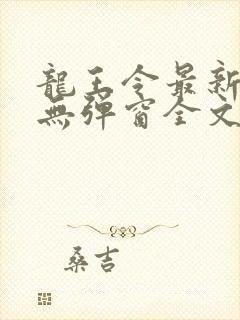 龍王令最新
無彈窗全文
桑吉